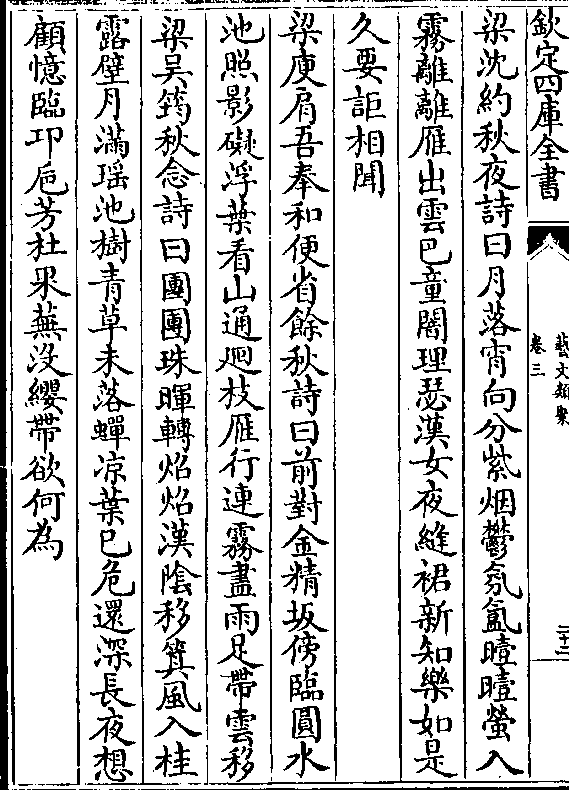 欽定四庫全書
藝文類聚
卷三
三十三
梁沈約秋夜詩曰月落宵向分紫烟鬱氛氲曀曀螢入
霧離離雁出雲巴童闇理瑟漢女夜縫裙新知樂如是
久要詎相聞
梁庾肩吾奉和便省餘秋詩曰前對金精坂傍臨圓水
池照影礙浮葉看山通迥枝雁行連霧盡雨足帶雲移
梁吴筠秋念詩曰團團珠暉轉焰焰漢陰移箕風入桂
露璧月滿瑶池樹青草未落蟬凉葉已危還深長夜想
顧憶臨卭巵芳杜果蕪没纓帶欲何為